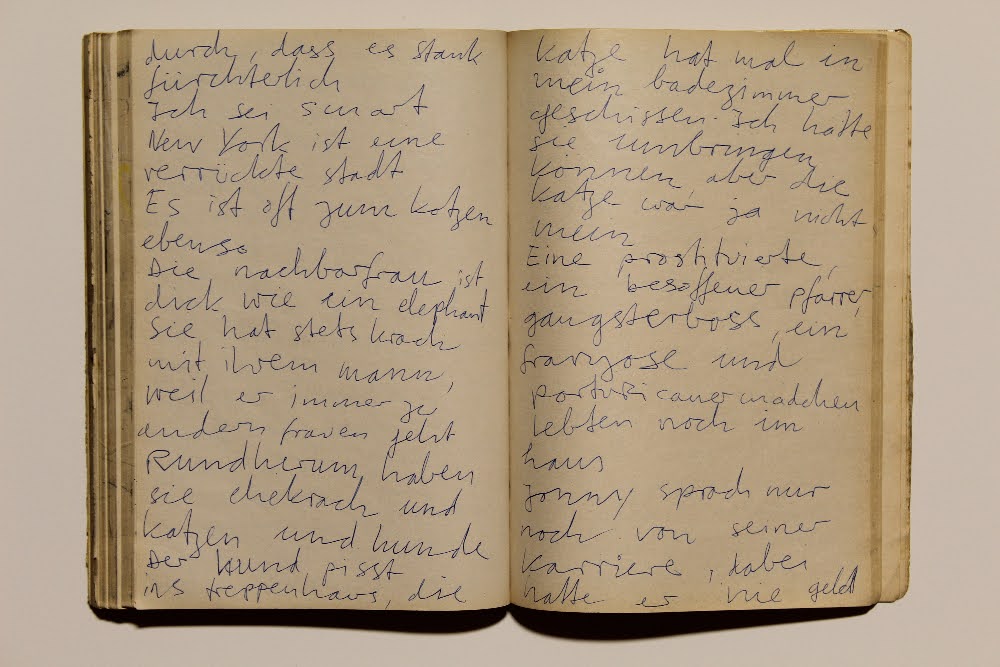 durch, dass es stank
fürchterlich
Ich sei smart
New York ist eine
verrückte stadt
Es ist oft zum kotzen
ebenso
Die nachbarfrau ist
dick wie ein elephant
sie hat stets krach
mit ihrem mann,
weil er immer zu
andern frauen geht
Rundherum haben
sie ehekrach und
katzen und hunde
Der hund pisst
ins treppenhaus, die
katze hat mal in
mein badezimmer
geschissen. Ich hätte
sie umbringen
können, aber die
katze war ja nicht
mein
Eine prostituierte,
ein besoffener pfarrer,
gangsterboss, ein
franzose und
portoricanermädchen
lebten noch im
haus
Jonny sprach nur
noch von seiner
karriere, dabei
hatte er nie geld